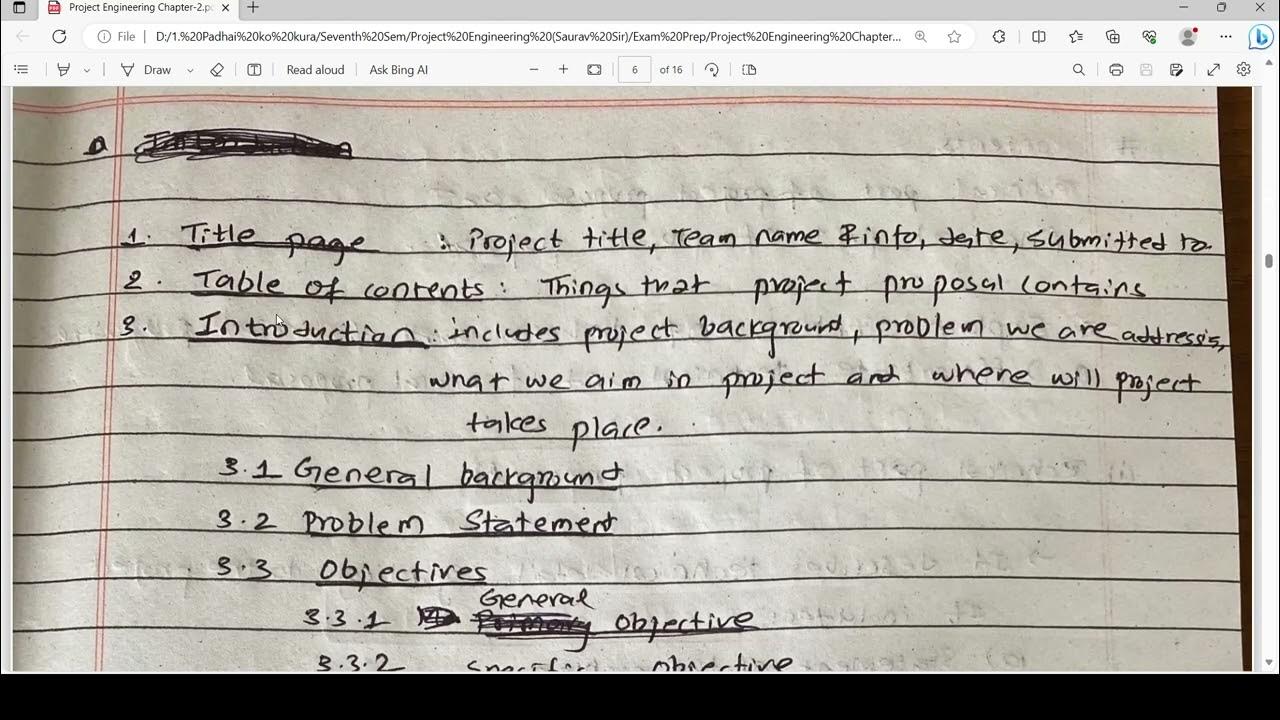 Project Engineering Chapter-2.p
File D:/1.%20Padhai%20ko%20kura/Seventh%20Sem/Project%20Engineering%20(Saurav%20Sir)/Exam%20Prep/Project%20Engineering%20Chapter...
Draw Read aloud Ask Bing AI 6 of 16
1. Title page : Project title, Team name & info, date, submitted to
2. Table of contents : Things that project proposal contains
3. Introduction : includes project background, problem we are addressis,
what we aim in project and where will project
takes place.
3.1 General background
3.2 Problem Statement
3.3 Objectives
General
3.3.1 objective
3.3.2 specific objective